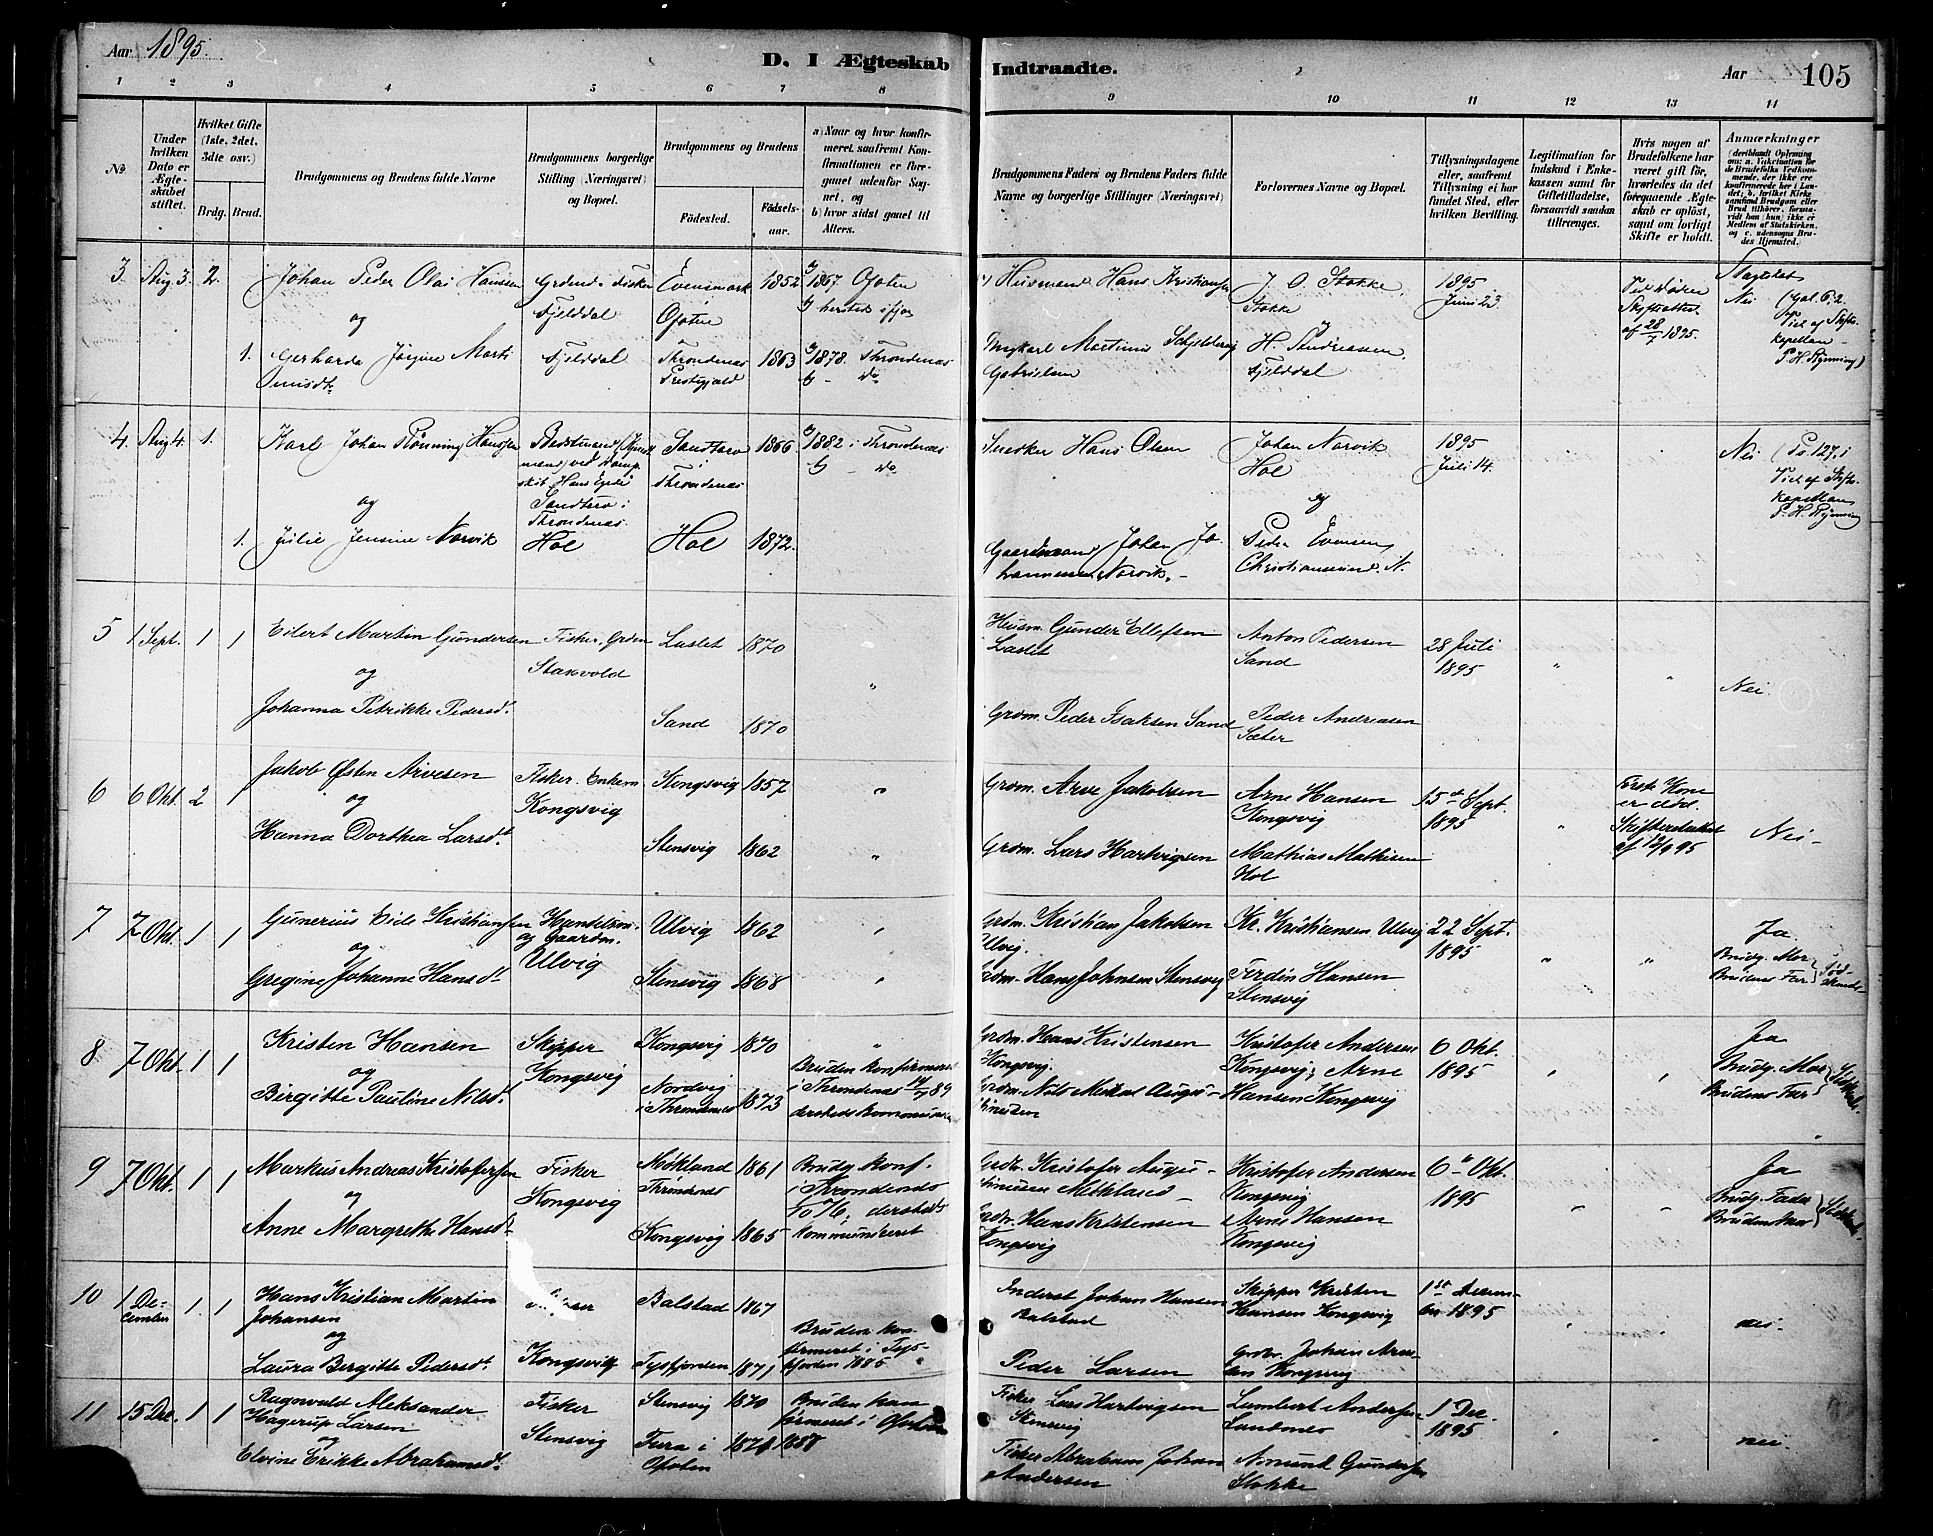 Aar 1895.
D. I Ægteskab Indtraadte.
Aar 105
1 2 3 4 5 6 7 8 9 10 11 12 13 14
No.
Under hvilken Dato er Ægteskabet stiftet.
Hvilket Gifte (1ste, 2det, 3die osv.)
Brdg. Brud.
Brudgommens og Brudens fulde Navne
Brudgommens borgerlige Stilling (Næringsvei) og Bopæl.
Brudgommens og Brudens
Fødested.
Fødselsaar.
a) Naar og hvor konfirmeret, saafremt Konfirmationen er foregaaet udenfor Sognet, og
b) hvor sidst gaaet til Alters.
Brudgommens Faders og Brudens Faders fulde Navne og borgerlige Stillinger (Næringsvei)
Forlovernes Navne og Bopæl.
Tillysningsdagene eller, saafremt Tillysning ei har fundet Sted, efter hvilken Bevilling.
Legitimation for Indskud i Enkekassen samt for Giftetilladelse, forsaavidt saadan tiltrænges.
Hvis nogen af Brudefolkene har været gift før, hvorledes da det foregaaende Ægteskab er opløst, samt om lovligt Skifte er holdt.
Anmærkninger
3 Aug. 3. 2. Johan Peder Olai Hanssen
og
1. Gerharda Jørgine Martinusdt.
Fjelddal
Fjelddal
Evensmark Ofoten 1852
Throndenæs Prestgjæld 1863
1867. Ofoten
1878. Throndenæs
Husmand Hans Kristiansen
J. O. Stokke, Stokke
H. Andreassen, Fjelddal
1895 Juni 23
28/7 1895.
Nei
4. Aug 4. 1. Karl Johan Rønning Hanssen
og
1. Julie Jensine Norvik
Sandtorv i Throndenæs
Hol
Sandtorv i Throndenæs 1866
Hol 1872.
1882 i Throndenæs
Snedker Hans Olsen
Gaardmand Johan Johannesen Norvik.
Johan Norvik Hol
og
Peder Evensen Christiansund. N.
1895 Juli 14.
Nei
5 1 Sept. 1 1 Eilert Martin Gundersen
og
Johanna Petrikke Pedersdt.
Fisker.
Laslet 1870
Sand 1870
Husm. Gunder Ellefsen Laslet
Grdm. Peder Isaksen Sand
Anton Pedersen Sand
Peder Andreasen Sæter
28 Juli 1895
Nei.
6 6 Okt. 2 1 Jakob Østen Arvesen
og
Hanna Dorthea Larsdt.
Fisker. Enkem. Kongsvig
Kongsvig 1857
Stensvig 1862
Grdm. Arve Jakobsen
Grdm. Lars Hartvigsen
Arne Hansen Kongsvig
Mathias Mathisen Hol
15de Sept. 1895
Første Kone er død.
Nei
7 7 Okt. 1 1 Gunerius Eide Kristiansen
og
Gregine Johanne Hansdt.
Handelsm. og Gaardm. Ulvig
Ulvig 1862
Stensvig 1868
Grdm. Kristian Jakobsen Ulvig.
Grdm. Hans Johnsen Stensvig
Kr. Kristiansen Ulvig
Ferdin Hansen Stensvig
22 Sept. 1895
Ja
Brudg. Mor
Brudens Far
8 7 Okt. 1 1 Kristen Hansen
og
Birgitte Pauline Nilsdt.
Skipper Kongsvig
Kongsvig 1870
Nordvig i Throndenæs 1873
Bruden konfirmeret i Throndenæs
Grdm. Hans Kristensen Kongsvig.
Grdm. Nils Mikal Augustinussen
Kristofer Andersen Kongsvig, Arne Hansen Kongsvig
6 Okt. 1895
Ja
Brudg. Mor
Brudens Far
9 7 Okt. 1 1 Markus Andreas Kristofersen
og
Anne Margrethe Hansdt.
Fisker Kongsvig
Møkland 1861
Kongsvig 1865
Brudg. konf. i Throndenæs
kommuniceret
Kristofer Augustinussen
Hans Kristensen Kongsvig
Kristofer Andersen Kongsvig
Arne Hansen Kongsvig
6te Okt. 1895
Ja
Brudg. Fader
10 1 December 1. 1 Hans Kristian Martin Johansen
og
Laura Birgitte Pedersdt.
Kongsvig
Balstad 1867
Tysfjorden 1871
Bruden konfirmeret i Tysfjorden 1885
Inderst Johan Hansen Balstad
Peder Larsen
Skipper Kristen Hansen Kongsvig
1ste December 1895
nei
11 15 De. 1 1 Ragnvald Aleksander Hagerup Larsen
og
Elvine Erikke Abrahamsdt.
Fisker Stensvig
Stensvig 1870
i Ofoten
Bruden konfirmeret i Ofoten
Fisker Lars Hartvigsen Stensvig
Fisker Abraham Johan Andersen
Lambert Andersen Sandnes
Amund Gundersen Stokke
1 Dec. 1895
nei.